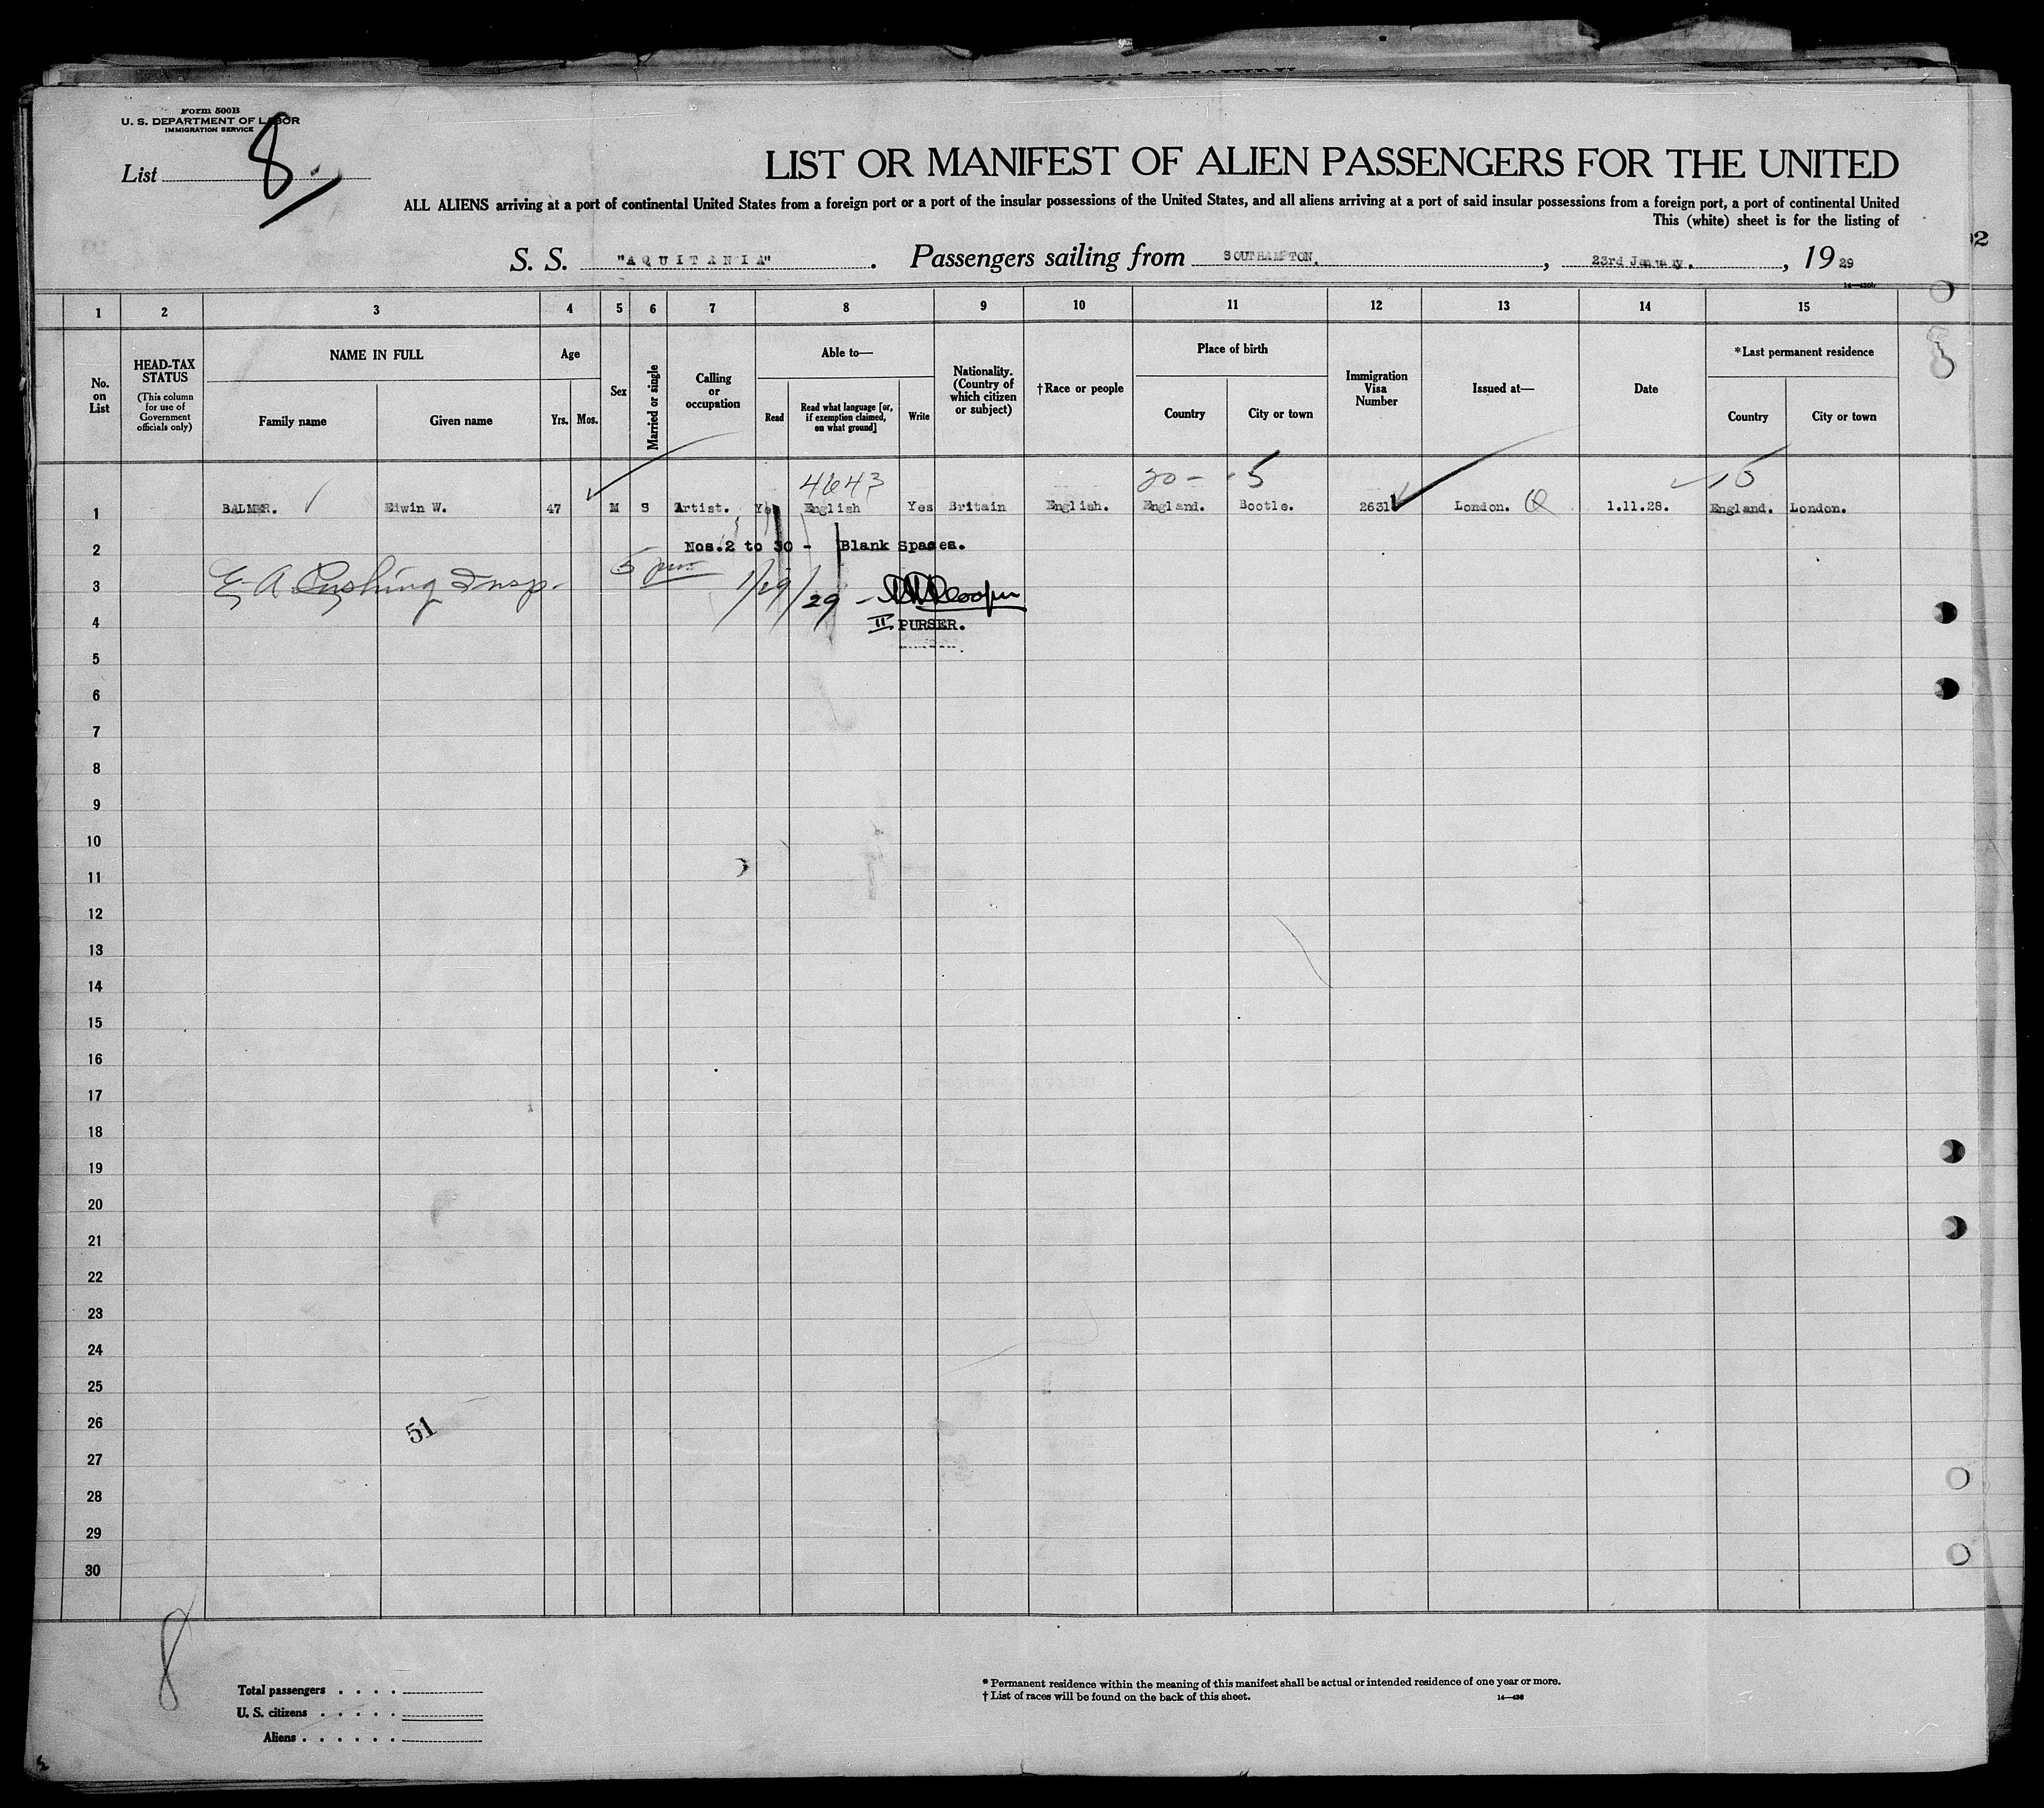 Form 500B
U. S. DEPARTMENT OF LABOR
IMMIGRATION SERVICE
List 8
LIST OR MANIFEST OF ALIEN PASSENGERS FOR THE UNITED
ALL ALIENS arriving at a port of continental United States from a foreign port or a port of the insular possessions of the United States, and all aliens arriving at a port of said insular possessions from a foreign port, a port of continental United
This (white) sheet is for the listing of
S. S. "AQUITANIA". Passengers sailing from SOUTHAMPTON., 23rd January., 1929
1 2 3 4 5 6 7 8 9 10 11 12 13 14 15
No. on List
HEAD-TAX STATUS
(This column for use of Government officials only)
NAME IN FULL
Family name Given name
Age
Yrs. Mos.
Sex
Married or single
Calling or occupation
Able to—
Read
Read what language [or, if exemption claimed, on what ground]
Write
Nationality. (Country of which citizen or subject)
†Race or people
Place of birth
Country City or town
Immigration Visa Number
Issued at—
Date
*Last permanent residence
Country City or town
4643 20 - 5 15
1 BALMER. Edwin W. 47 M S Artist. Yes English Yes Britain English. England. Bootle. 2631 London. Q 1.11.28. England. London.
2 Nos.2 to 30 - Blank Spaces.
3 E A Cushing Insp. 5 pm 1/29/29 - Cooper
4 II PURSER.
5
6
7
8
9
10
11
12
13
14
15
16
17
18
19
20
21
22
23
24
25
26 51
27
28
29
30
8
Total passengers
U. S. citizens
Aliens
* Permanent residence within the meaning of this manifest shall be actual or intended residence of one year or more.
† List of races will be found on the back of this sheet.